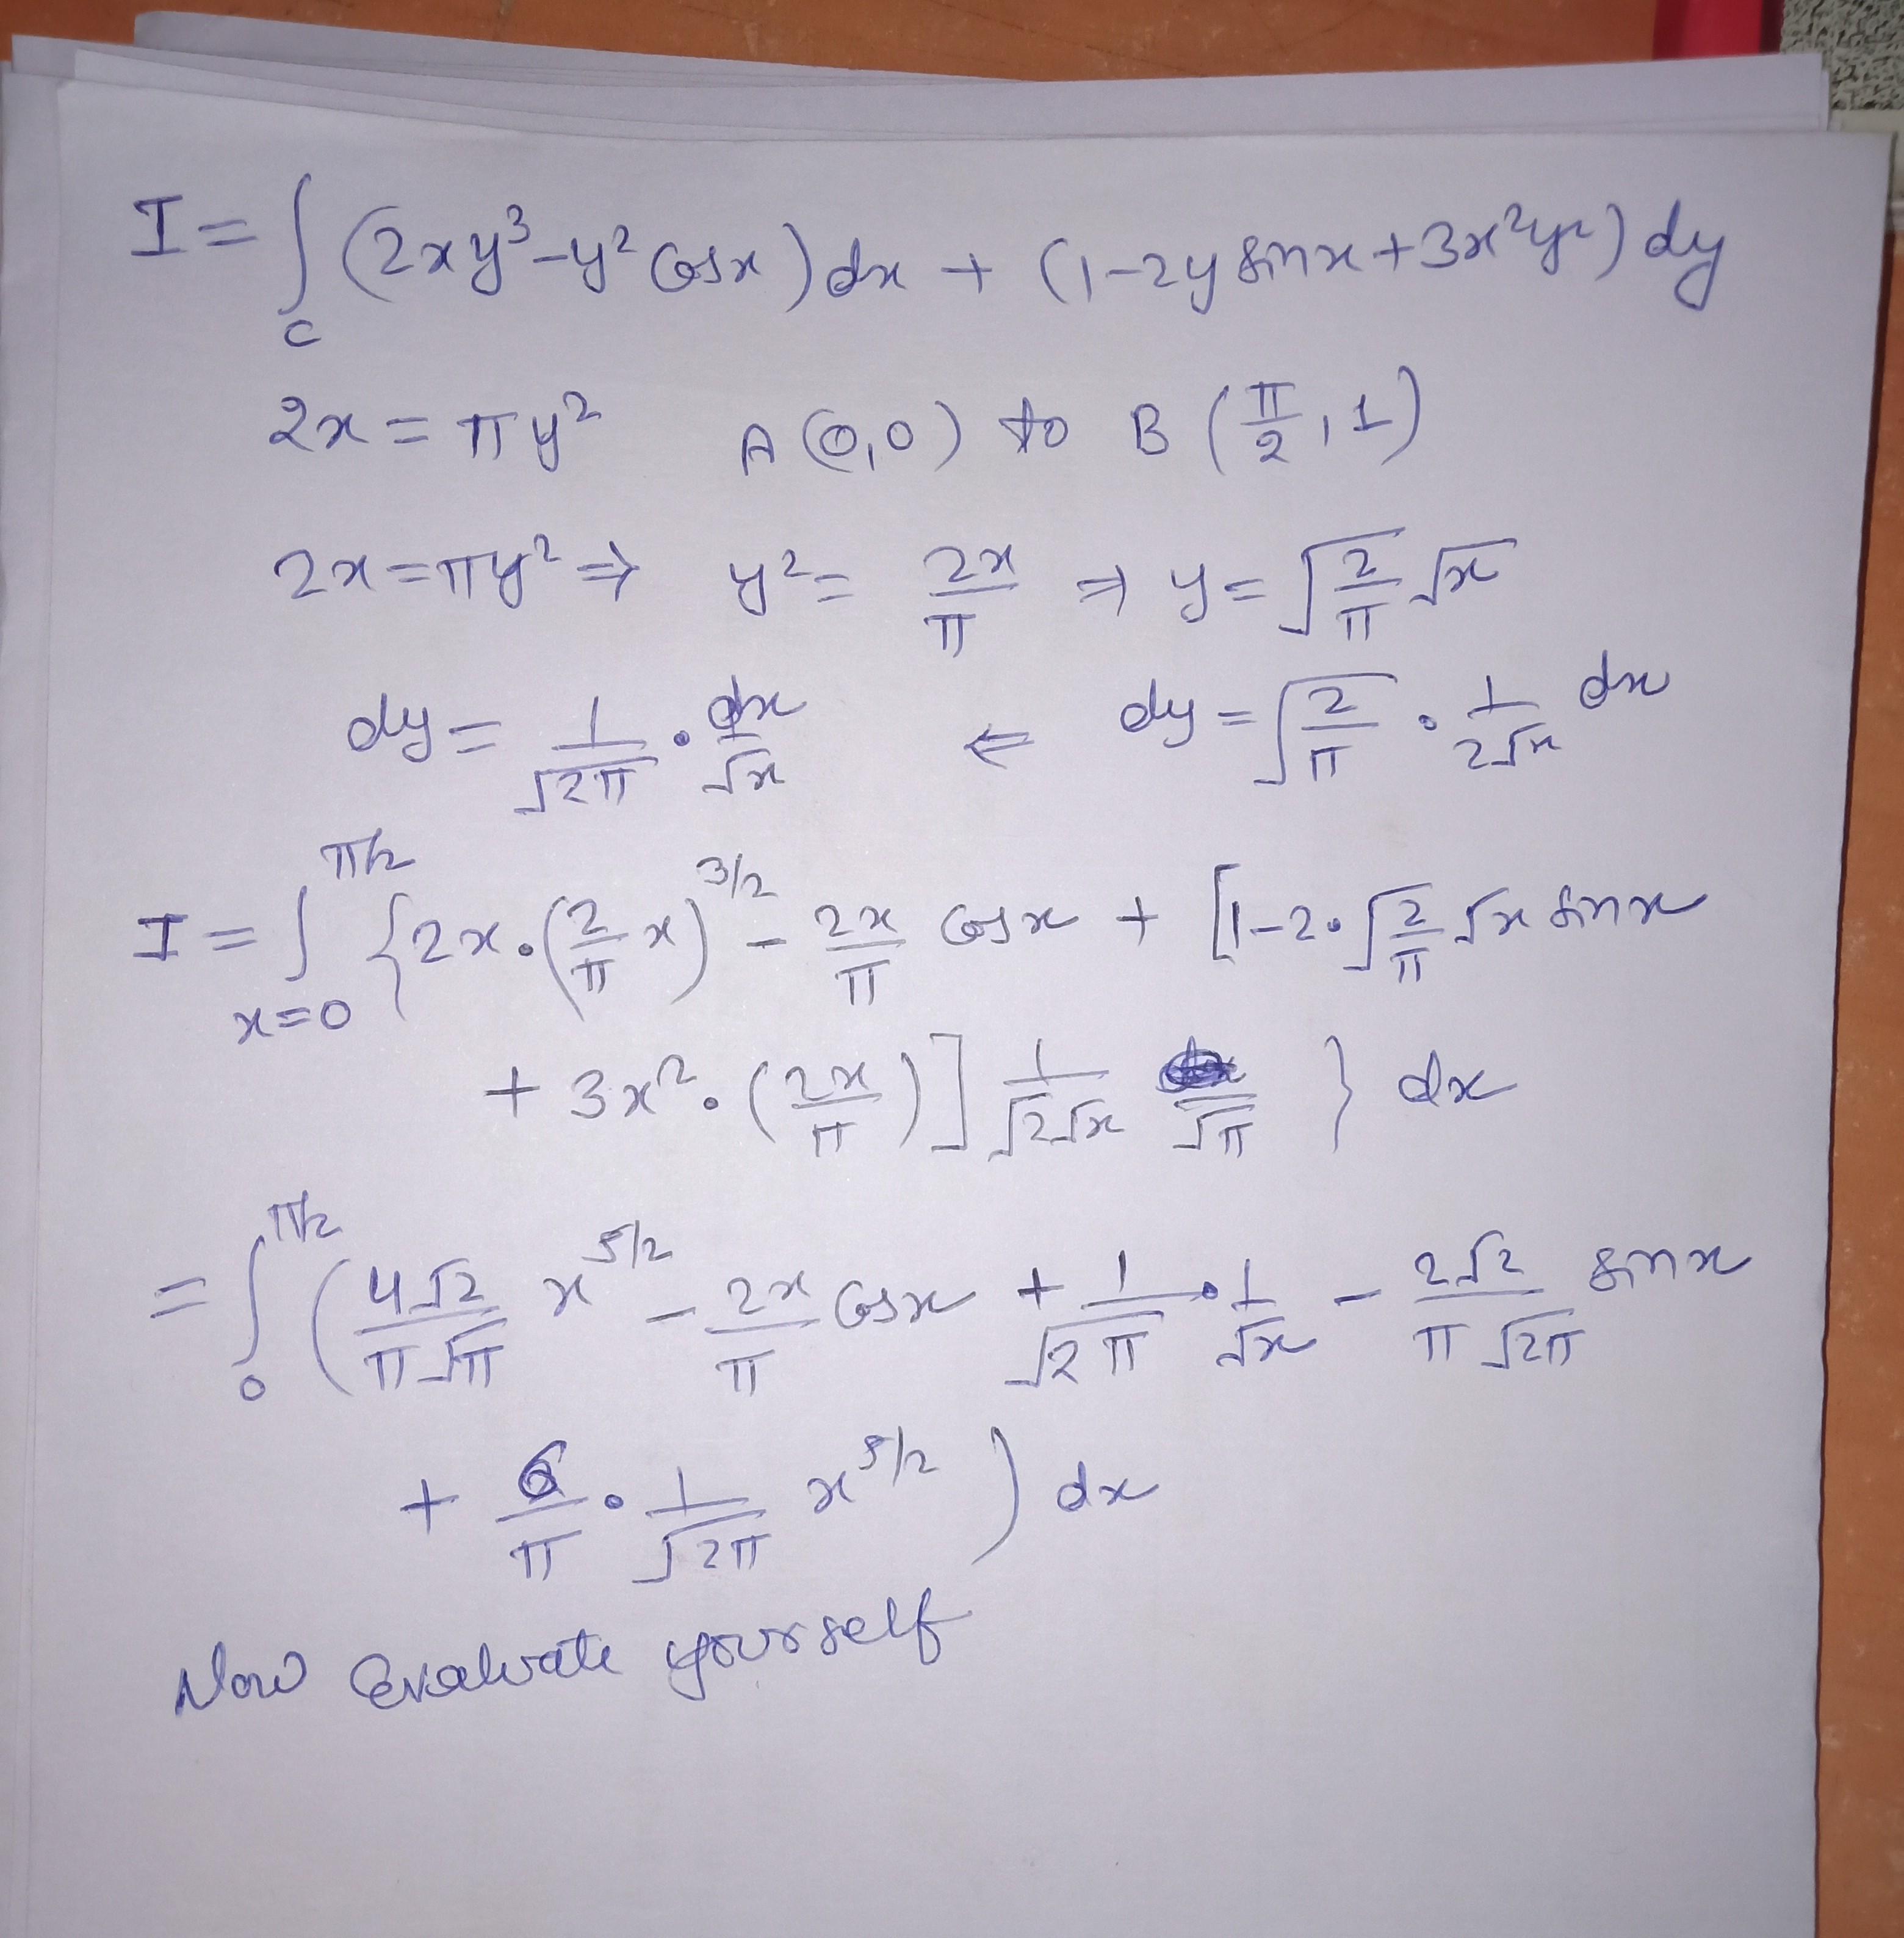 I = ∫_C (2xy³ - y² cosx) dx + (1-2y sinx + 3x²y²) dy
2x = πy² A(0,0) to B (π/2, 1)
2x = πy² ⇒ y² = 2x/π ⇒ y = √(2/π) √x
dy = 1/√(2π) · dx/√x ⇐ dy = √(2/π) · 1/(2√x) dx
I = ∫_{x=0}^{π/2} {2x·(2/π x)^{3/2} - 2x/π cosx + [1-2·√(2/π) √x sinx
+ 3x²·(2x/π)] 1/(√2√x) 1/√π } dx
= ∫_0^{π/2} (4√2/(π√π) x^{5/2} - 2x/π cosx + 1/√(2π) · 1/√x - 2√2/(π√(2π)) sinx
+ 6/π · 1/√(2π) x^{5/2}) dx
Now Evaluate yourself